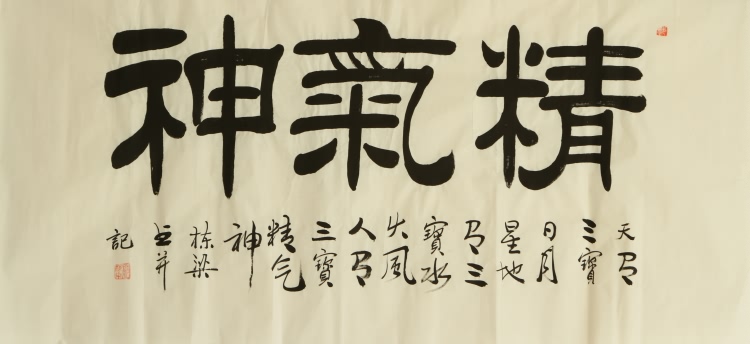 精氣神
天有
三寶
日月
星地
有三
寶水
火風
人有
三寶
精气
神
栋梁
书并
記